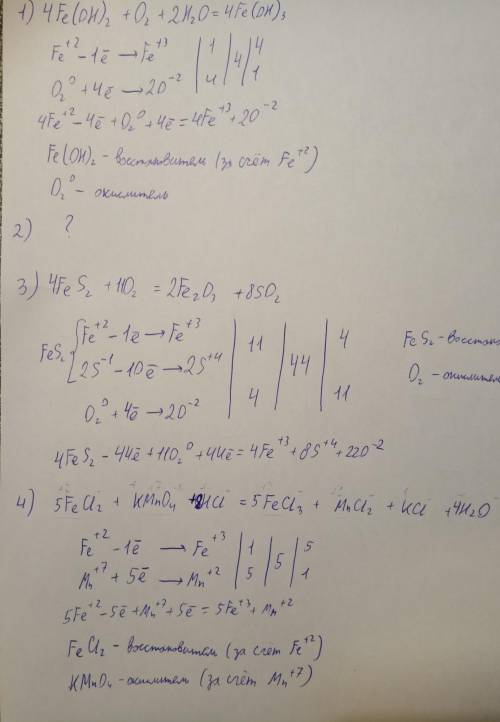 1) 4Fe(OH)₂ + O₂ + 2H₂O = 4Fe(OH)₃
Fe⁺² - 1ē → Fe⁺³ | 1 | 4 | 4
O₂⁰ + 4ē → 2O⁻² | 4 | | 1
4Fe⁺² - 4ē + O₂⁰ + 4ē = 4Fe⁺³ + 2O⁻²
Fe(OH)₂ - восстановитель (за счёт Fe⁺²)
O₂⁰ - окислитель
2) ?
3) 4FeS₂ + 11O₂ = 2Fe₂O₃ + 8SO₂
FeS₂ { Fe⁺² - 1ē → Fe⁺³ | 11 | 44 | 4
2S⁻¹ - 10ē → 2S⁺⁴
O₂⁰ + 4ē → 2O⁻² | 4 | | 11
FeS₂ - восстано
O₂ - окислитель
4FeS₂ - 44ē + 11O₂⁰ + 44ē = 4Fe⁺³ + 8S⁺⁴ + 22O⁻²
4) 5FeCl₂ + KMnO₄ + 8HCl = 5FeCl₃ + MnCl₂ + KCl + 4H₂O
Fe⁺² - 1ē → Fe⁺³ | 1 | 5 | 5
Mn⁺⁷ + 5ē → Mn⁺² | 5 | | 1
5Fe⁺² - 5ē + Mn⁺⁷ + 5ē = 5Fe⁺³ + Mn⁺²
FeCl₂ - восстановитель (за счёт Fe⁺²)
KMnO₄ - окислитель (за счёт Mn⁺⁷)